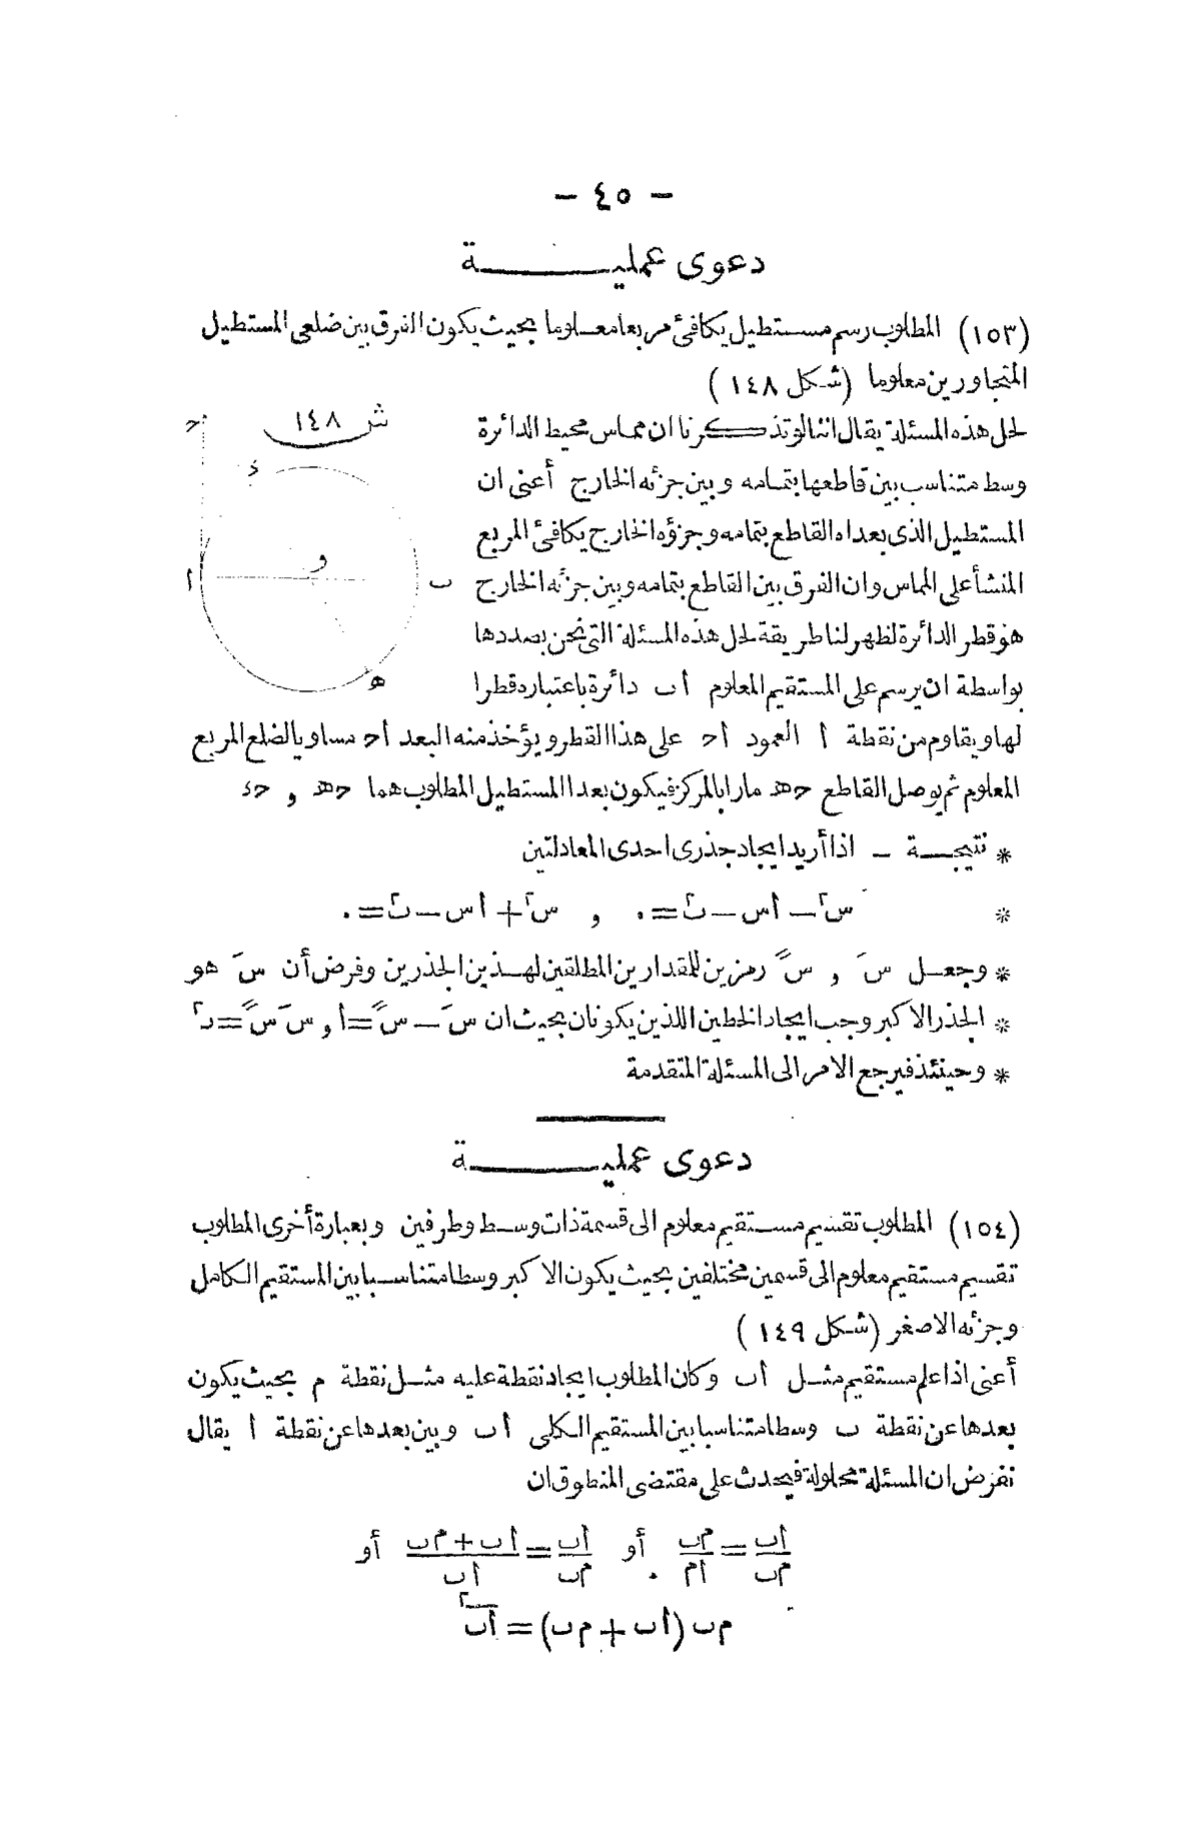 — ٤٥ —
دعوى عمليـــــة
(١٥٣) المطلوب رسم مستطيل يكافئ مربعا معلوما بحيث يكون الفرق بين ضلعى المستطيل
المتجاورين معلوما (شكل ١٤٨)
ش ١٤٨
حـ
ء
و
ا
ب
هـ
لحل هذه المسئلة يقال اننا لو تذكرنا ان مماس محيط الدائرة
وسط متناسب بين قاطعها بتمامه وبين جزئه الخارج أعنى ان
المستطيل الذى بعداه القاطع بتمامه وجزؤه الخارج يكافئ المربع
المنشأ على المماس وان الفرق بين القاطع بتمامه وبين جزئه الخارج
هو قطر الدائرة لظهر لنا طريقة لحل هذه المسئلة التى نحن بصددها
بواسطة ان يرسم على المستقيم المعلوم أب دائرة باعتباره قطرا
لها ويقاوم من نقطة أ العمود أحـ على هذا القطر ويؤخذ منه البعد أحـ مساويا لضلع المربع
المعلوم ثم يوصل القاطع حـهـ مارا بالمركز فيكون بعدا المستطيل المطلوب هما حـهـ و حـء
* نتيجـــة – اذا أريد ايجاد جذرى احدى المعادلتين
* س٢ – أس – ب٢ = ٠ و س٢ + أس – ب٢ = ٠
* وجعـل سَ و سً رمزين للمقدارين المطلقين لهـذين الجذرين وفرض أن سَ هو
* الجذر الاكبر وجب ايجاد الخطين اللذين يكونان بحيث ان سَ – سً = أ و سَ سً = ب٢
* وحينئذ فيرجع الامر الى المسئلة المتقدمة
دعوى عمليـــــة
(١٥٤) المطلوب تقسيم مستقيم معلوم الى قسمة ذات وسط وطرفين وبعبارة أخرى المطلوب
تقسيم مستقيم معلوم الى قسمين مختلفين بحيث يكون الاكبر وسطا متناسبا بين المستقيم الكامل
وجزئه الاصغر (شكل ١٤٩)
أعنى اذا علم مستقيم مثـل أب وكان المطلوب ايجاد نقطة عليه مثـل نقطة م بحيث يكون
بعدها عن نقطة ب وسطا متناسبا بين المستقيم الكلى أب وبين بعدها عن نقطة أ يقال
نفرض ان المسئلة محلولة فيحدث على مقتضى المنطوق ان
أب/مب = مب/أم أو أب/مب = (أب + مب)/أب أو
مب (أب + مب) = أب٢